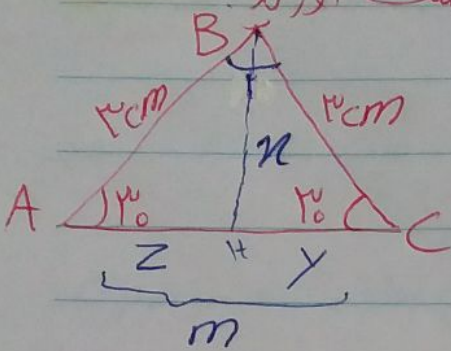 B
۳cm ۳cm
x
A ۳۰ ۳۰ C
Z H y
m